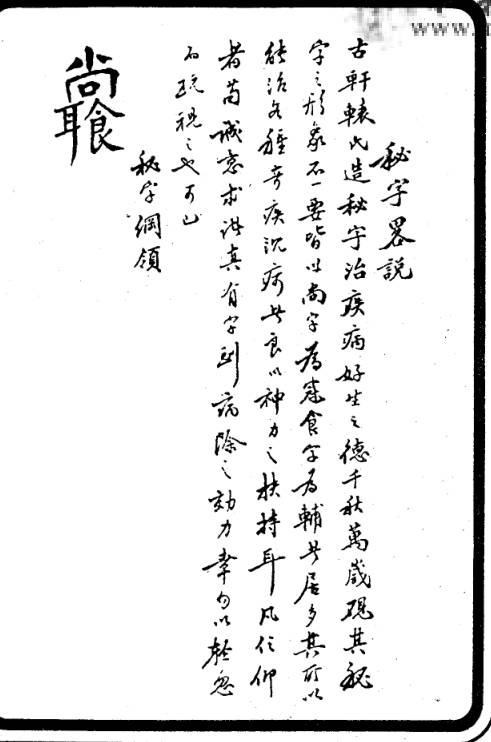 www.
秘字畧說
古軒轅氏造秘字治疾病好生之德千秋萬歲硯其秘
字之形象不一要皆以尚字為 食字為輔者居多其所以
能治各種奇疾沉疴者良以神力之扶持耳凡信仰
者苟誠意求治真有字到病除之効力幸勿以輕忽
而玩視之也可已
秘字綱領
尚耳食